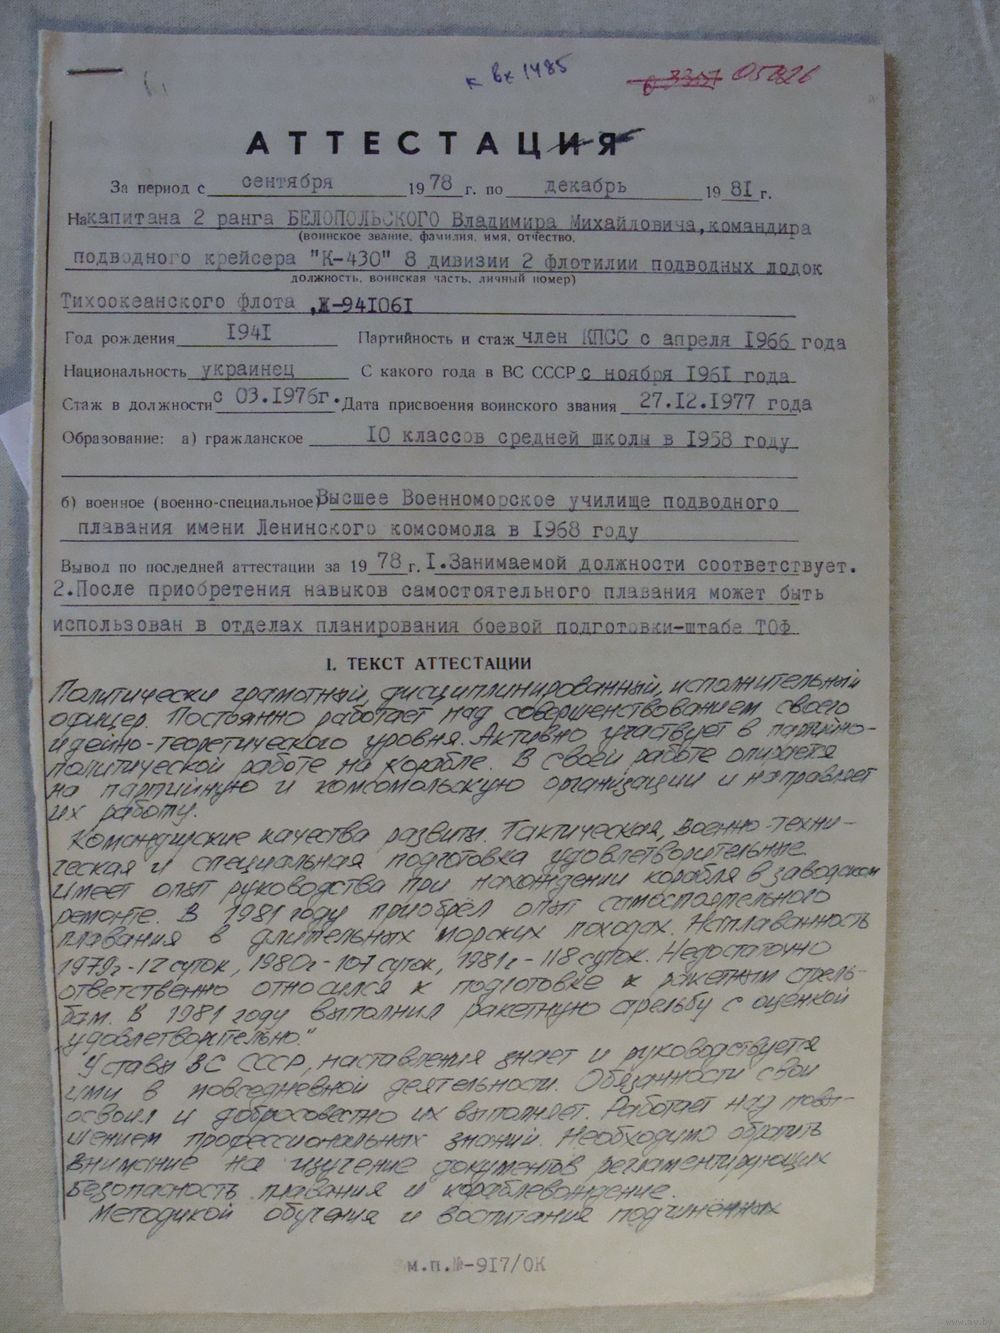 к вх 1485
05026
АТТЕСТАЦИЯ
За период с сентября 1978 г. по декабрь 1981 г.
На капитана 2 ранга БЕЛОПОЛЬСКОГО Владимира Михайловича, командира
(воинское звание, фамилия, имя, отчество,
подводного крейсера "К-430" 8 дивизии 2 флотилии подводных лодок
должность, воинская часть, личный номер)
Тихоокеанского флота, Ж-941061
Год рождения 1941 Партийность и стаж член КПСС с апреля 1966 года
Национальность украинец С какого года в ВС СССР с ноября 1961 года
Стаж в должности с 03.1976г. Дата присвоения воинского звания 27.12.1977 года
Образование: а) гражданское 10 классов средней школы в 1958 году
б) военное (военно-специальное) Высшее Военноморское училище подводного
плавания имени Ленинского комсомола в 1968 году
Вывод по последней аттестации за 1978 г. 1.Занимаемой должности соответствует.
2.После приобретения навыков самостоятельного плавания может быть
использован в отделах планирования боевой подготовки-штабе ТОФ
1. ТЕКСТ АТТЕСТАЦИИ
Политически грамотный, дисциплинированный, исполнительный
офицер. Постоянно работает над совершенствованием своего
идейно-теоретического уровня. Активно участвует в партийно-
политической работе на корабле. В своей работе опирается
на партийную и комсомольскую организации и направляет
их работу.
Командирские качества развиты. Тактическая, военно-техни-
ческая и специальная подготовка удовлетворительные.
Имеет опыт руководства при нахождении корабля в заводском
ремонте. В 1981 году приобрёл опыт самостоятельного
плавания в длительных морских походах. Наплаванность
1979г-12 суток, 1980г-107 суток, 1981г-118 суток. Недостаточно
ответственно относился к подготовке к ракетным стрель-
бам. В 1981 году выполнил ракетную стрельбу с оценкой
„удовлетворительно."
Уставы ВС СССР, наставления знает и руководствуется
ими в повседневной деятельности. Обязанности свои
освоил и добросовестно их выполняет. Работает над повы-
шением профессиональных знаний. Необходимо обратить
внимание на изучение документов регламентирующих
безопасность плавания и кораблевождение.
Методикой обучения и воспитания подчинённых
м.п.№-917/ОК
www.ay.by